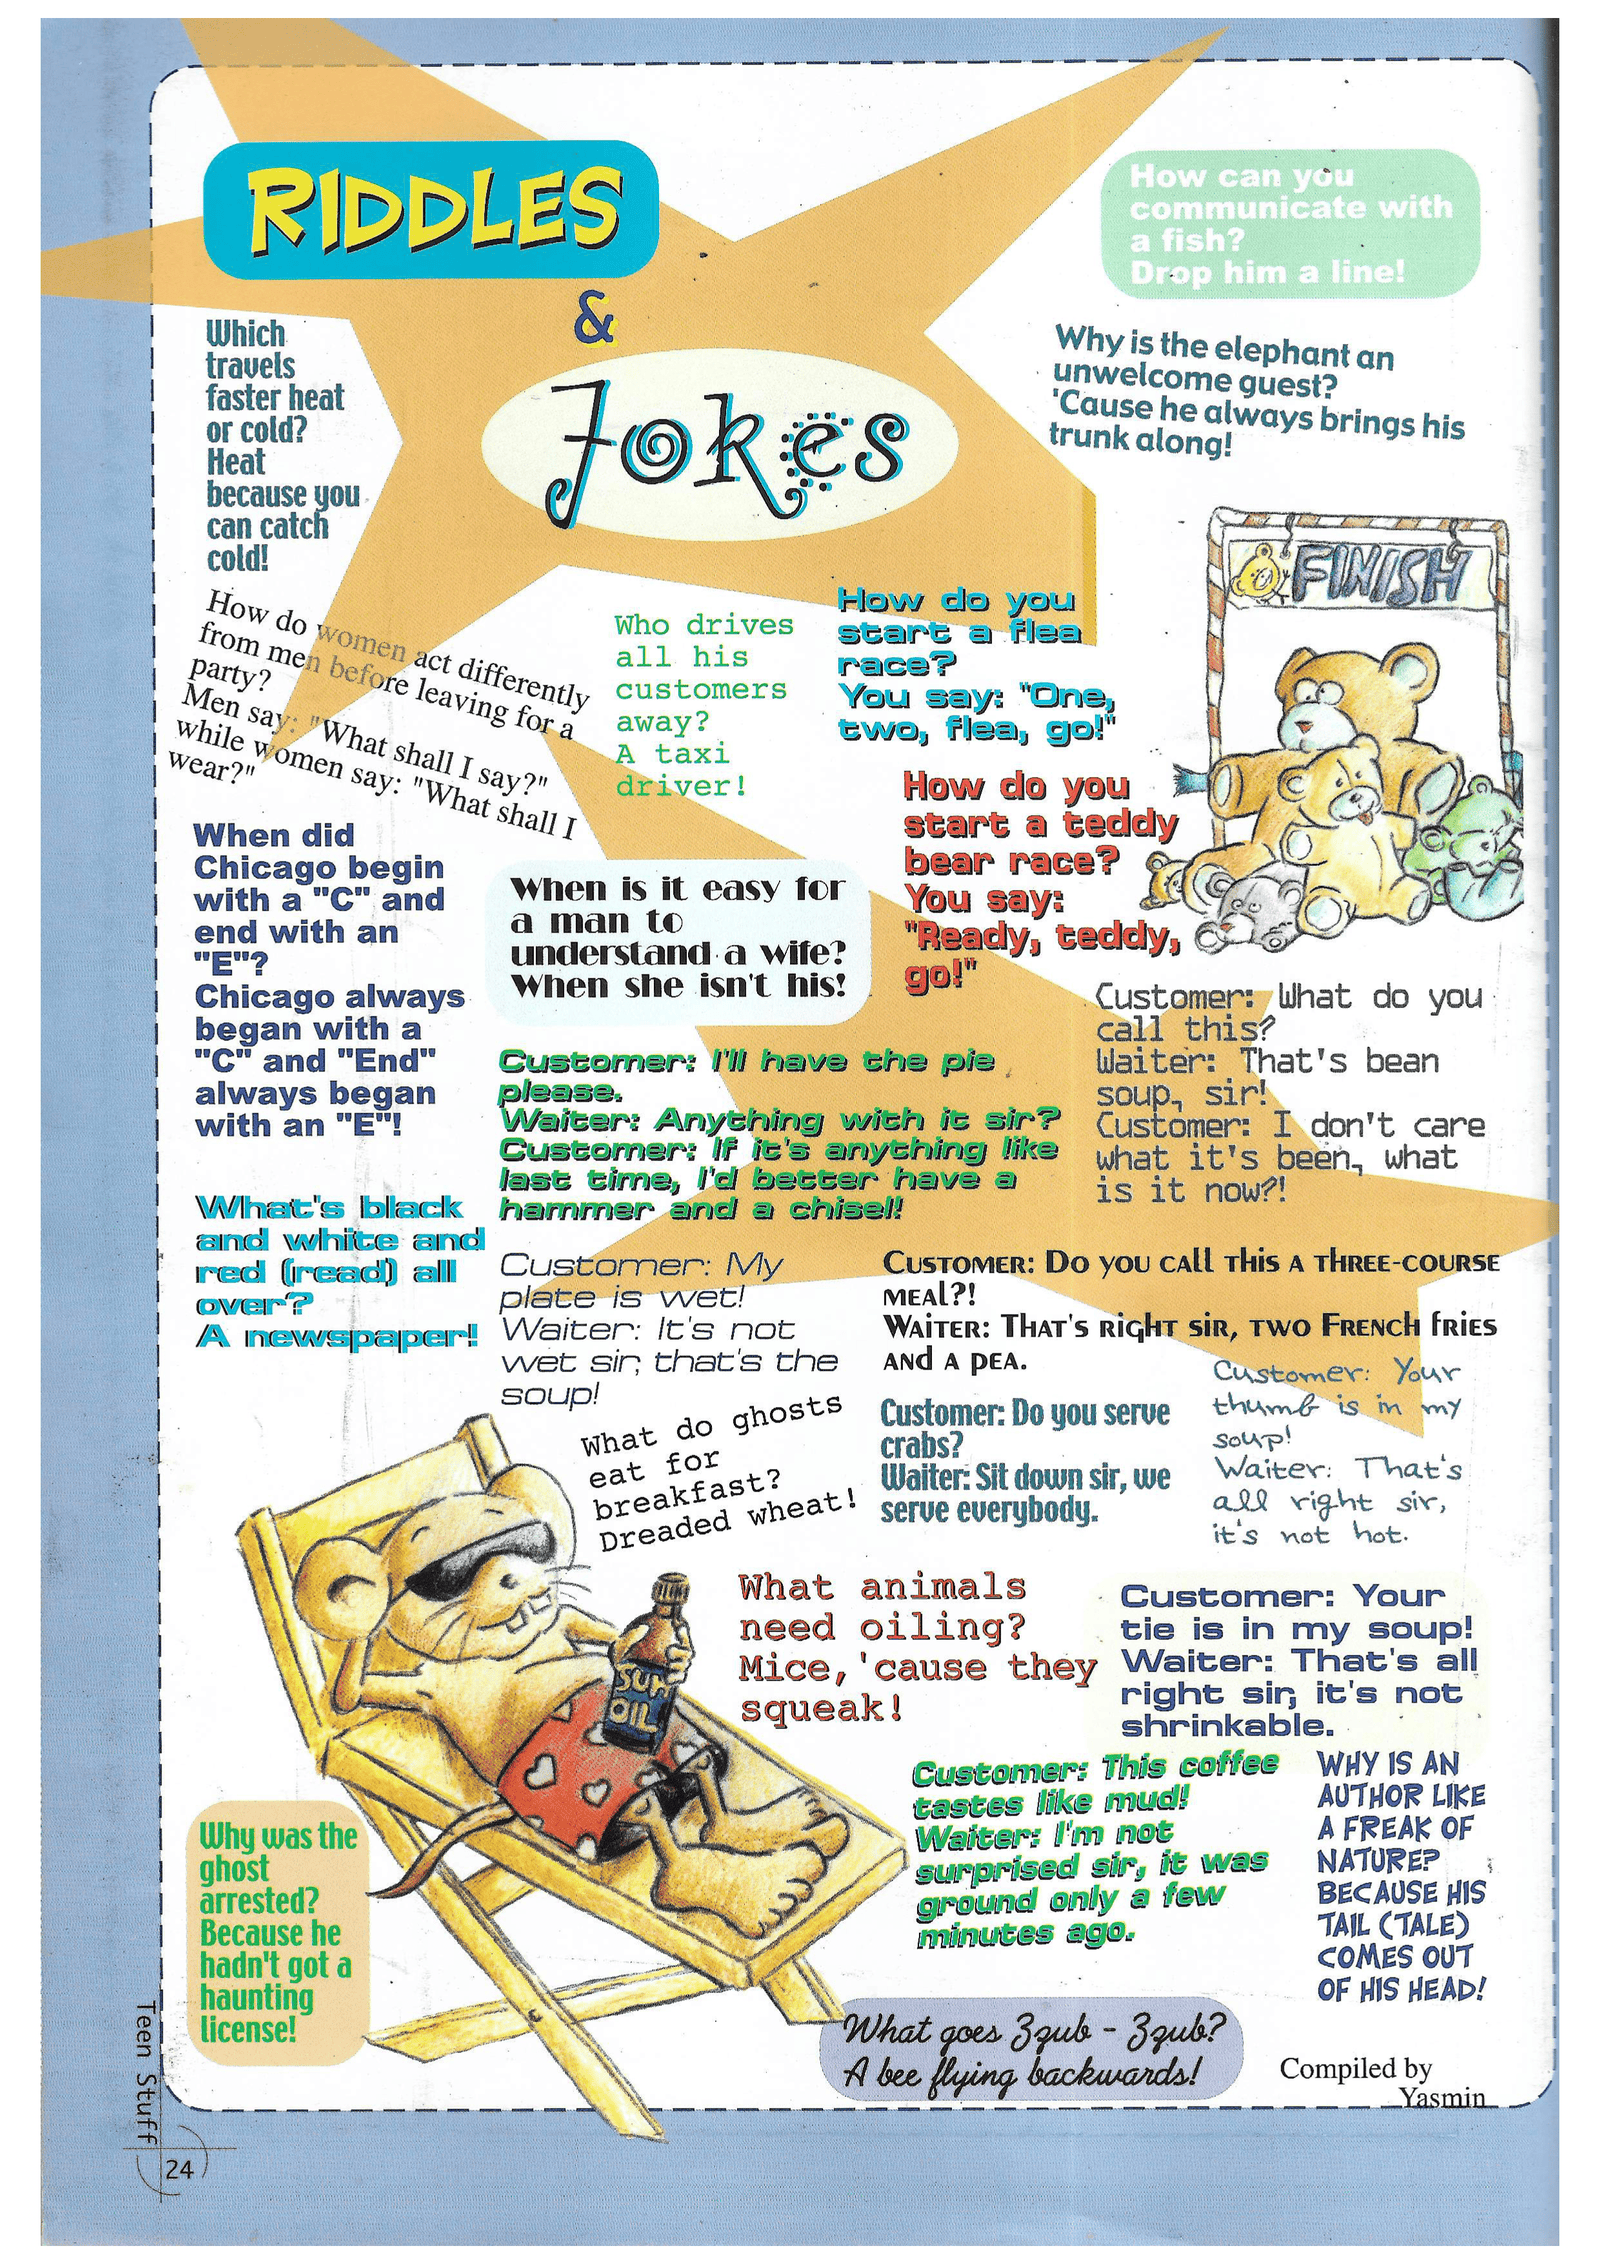 RIDDLES
&
Jokes
How can you
communicate with
a fish?
Drop him a line!
Which
travels
faster heat
or cold?
Heat
because you
can catch
cold!
Why is the elephant an
unwelcome guest?
'Cause he always brings his
trunk along!
FINISH
How do women act differently
from men before leaving for a
party?
Men say: "What shall I say?"
while women say: "What shall I
wear?"
Who drives
all his
customers
away?
A taxi
driver!
How do you
start a flea
race?
You say: "One,
two, flea, go!"
How do you
start a teddy
bear race?
You say:
"Ready, teddy,
go!"
When did
Chicago begin
with a "C" and
end with an
"E"?
Chicago always
began with a
"C" and "End"
always began
with an "E"!
When is it easy for
a man to
understand a wife?
When she isn't his!
Customer: What do you
call this?
Waiter: That's bean
soup, sir!
Customer: I don't care
what it's been, what
is it now?!
Customer: I'll have the pie
please.
Waiter: Anything with it sir?
Customer: If it's anything like
last time, I'd better have a
hammer and a chisel!
What's black
and white and
red (read) all
over?
A newspaper!
Customer: My
plate is wet!
Waiter: It's not
wet sir, that's the
soup!
Customer: Do you call this a three-course
meal?!
Waiter: That's right sir, two French fries
and a pea.
What do ghosts
eat for
breakfast?
Dreaded wheat!
Customer: Do you serve
crabs?
Waiter: Sit down sir, we
serve everybody.
Customer: Your
thumb is in my
soup!
Waiter: That's
all right sir,
it's not hot.
SUN
OIL
What animals
need oiling?
Mice, 'cause they
squeak!
Customer: Your
tie is in my soup!
Waiter: That's all
right sir, it's not
shrinkable.
Customer: This coffee
tastes like mud!
Waiter: I'm not
surprised sir, it was
ground only a few
minutes ago.
WHY IS AN
AUTHOR LIKE
A FREAK OF
NATURE?
BECAUSE HIS
TAIL (TALE)
COMES OUT
OF HIS HEAD!
Why was the
ghost
arrested?
Because he
hadn't got a
haunting
license!
What goes Zzub - Zzub?
A bee flying backwards!
Compiled by
Yasmin
Teen Stuff
24